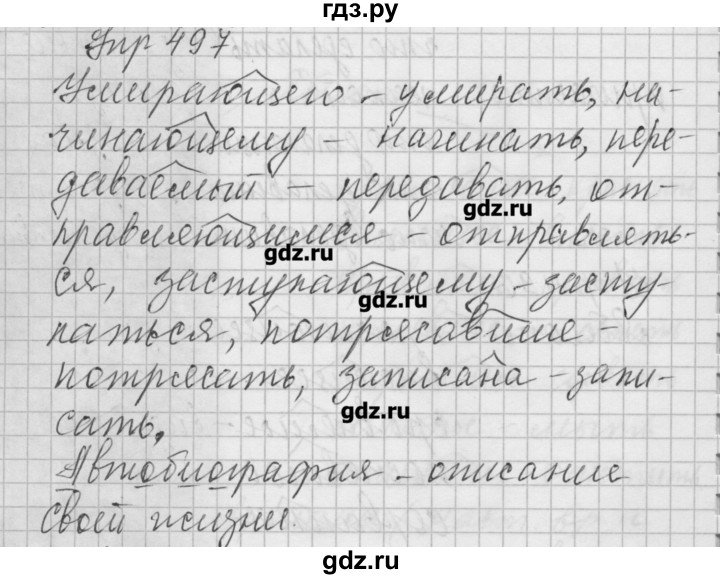 гдз.ру
Упр 497
Умирающего – умирать, на-
чинающему – начинать, пере-
даваемый – передавать, от-
gdz.ru
правляющимися – отправлять-
gdz.ru
ся, заступающему – засту
gdz.ru
паться, потрясавшие –
потрясать, записана – запи-
gdz.ru
сать.
Автобиография – описание
своей жизни.
gdz.ru